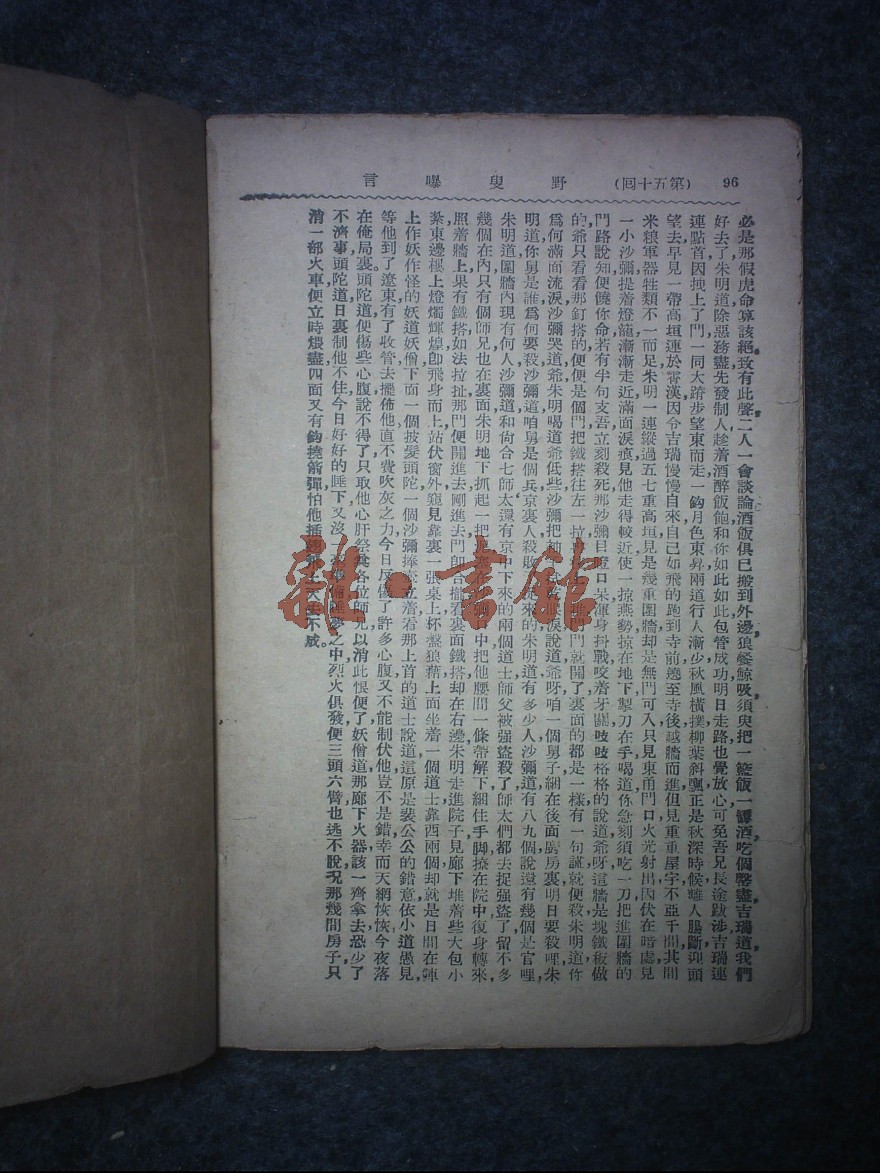 96 （第五十回） 野叟曝言
必是那假虎命算該絕致有此聲，二人一會談論酒飯俱已搬到外邊狼餐鯨吸須臾把一籃飯一罈酒吃個罄盡吉瑞道我們
好去了，朱明道除惡務盡先發制人趁着酒醉飯飽和你如此如此包管成功明日走路也覺放心可免吾兄長途跋涉吉瑞連
連點首因拽上了門一同大踏步望東而走一鈎月色東昇兩道行人漸少秋風橫撲柳葉斜飄正是秋深時候離人腸斷迎頭
望去，早見一帶高垣連於霄漢因令吉瑞慢慢自來自己如飛的跑到寺前遶至寺後越牆而進但見重重屋宇不亞千間其間
米粮軍器牲類不一而足朱明一連蹤過五七重高垣見是幾重圍牆却是無門可入只見東甬門口火光射出因伏在暗處見
一小沙彌提着燈籠漸漸走近滿面淚痕見他走得較近使一掠燕勢掠在地下掣刀在手喝道你急刻須吃一刀把進圍牆的
門路說知便饒你命若有半句支吾立刻殺死那沙彌目瞪口呆渾身抖戰咬着牙關吱吱格格的說道爺呀這牆是塊鐵板做
的爺只看看那釘搭的便便是個門把鐵搭往左一拉 門就開了裏面的都是一樣有一句謊就便殺朱明道你
爲何滿面流淚沙彌哭道爺朱明喝道爺低些沙彌把 淚說道爺呀咱一個舅子綑在後面廚房裏明日要殺哩朱
明道你舅是誰爲何要殺沙彌道咱舅是個兵京裏人殺敗 來的朱明道有多少人沙彌道有八九個說還有幾個是官哩，
朱明道圍牆內現有何人沙彌道和尙合七師太還有京中下來的兩個道士師父被强盜殺了師太們都去捉强盜了留不多
幾個在內只有個師兄也在裏面朱明地下抓起一把 口中把他腰間一條帶解下綑住手脚撩在院中復身轉來，
照着牆上果有鐵搭如法拉扯那門便開進去剛進去門卽合攏看裏面鐵搭却在右邊朱明走進院子見廊下堆着些大包小
紮東邊樓上燈燭輝煌卽飛身而上站伏窗外窺見靠裏一張桌上坏盤狼藉上面坐着一個道士靠西兩個却就是日間在陣
上作妖作怪的妖道妖僧下面一個披髮頭陀一個沙彌捧壺立着看那上首的道士說道這原是裴公公的錯意依小道愚見，
等他到了遼東有了收管去擺佈他直不費吹灰之力今日反傷了許多心腹又不能制伏他豈不是錯幸而天網恢恢今夜落
在俺局裏。頭陀道便傷些心腹說不得了只取他心肝祭奠各位師兄以消此恨便了妖僧道那廊下火器該一齊拿去恐少了
不濟事頭陀道日裏制他不住今日好好的睡下又沒 之中烈火俱發便三頭六臂也逃不脫況那幾間房子，只
消一部火車便立時燬盡四面又有鈎撓箭彈怕他插翅飛上天去不成。
雜·書館